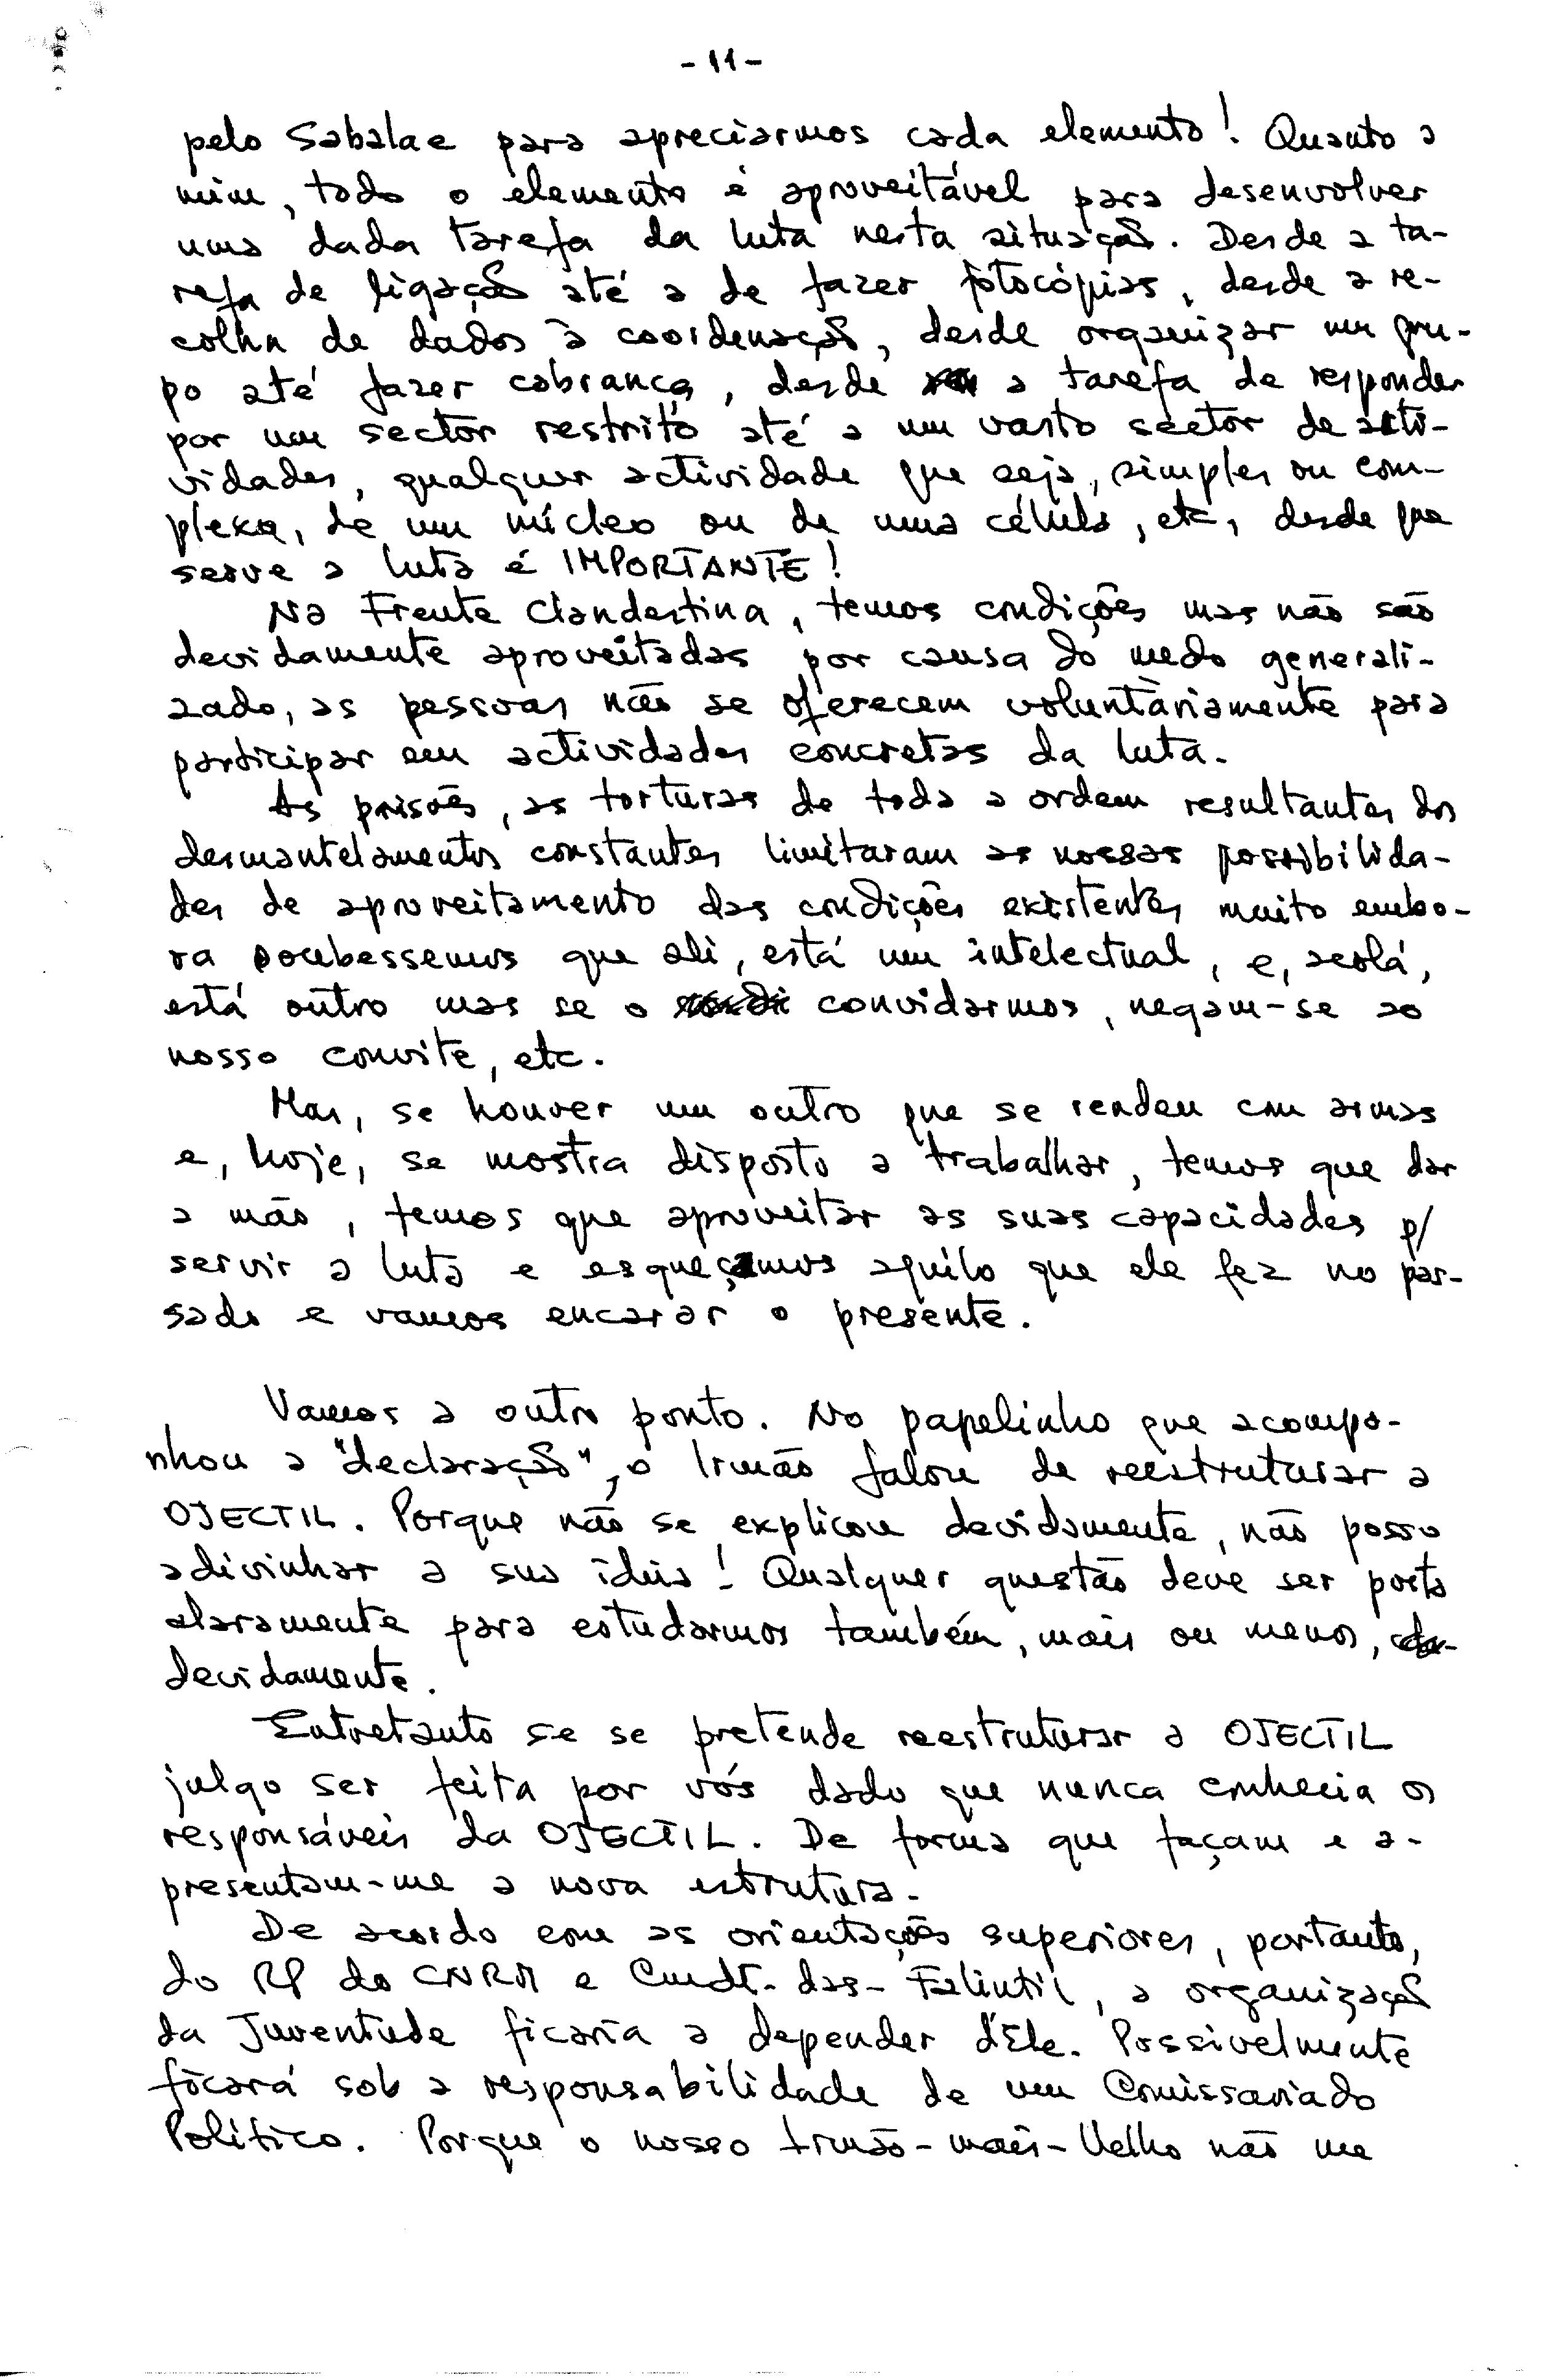 - 11 -
pelo Sabalae para apreciarmos cada elemento! Quanto a
mim, todo o elemento é aproveitável para desenvolver
uma dada tarefa da luta nesta situação. Desde a ta-
refa de ligação até a de fazer fotocópias, desde a re-
colha de dados à coordenação, desde organizar um gru-
po até fazer cobrança, desde a tarefa de responder
por um sector restrito até a um vasto sector de acti-
vidades, qualquer actividade que seja, simples ou com-
plexa, de um núcleo ou de uma célula, etc, desde que
serve a luta é IMPORTANTE!
Na Frente Clandestina, temos condições mas não são
devidamente aproveitadas por causa do medo generali-
zado, as pessoas não se oferecem voluntàriamente para
participar em actividades concretas da luta.
As prisões, as torturas de toda a ordem resultantes dos
desmantelamentos constantes limitaram as nossas possibilida-
des de aproveitamento das condições existentes muito embo-
ra soubessemos que ali, está um intelectual, e, acolá,
está outro mas se o convidarmos, negam-se ao
nosso convite, etc.
Mas, se houver um outro que se rendeu com armas
e, hoje, se mostra disposto a trabalhar, temos que dar
a mão, temos que aproveitar as suas capacidades p/
servir a luta e esqueçamos aquilo que ele fez no pas-
sado e vamos encarar o presente.
Vamos a outro ponto. No papelinho que acompa-
nhou a "declaração", o Irmão falou de reestruturar a
OJECTIL. Porque não se explicou devidamente, não posso
adivinhar a sua ideia! Qualquer questão deve ser posta
claramente para estudarmos também, mais ou menos,
devidamente.
Entretanto se se pretende reestruturar a OJECTIL
julgo ser feita por vós dado que nunca conhecia os
responsáveis da OJECTIL. De forma que façam e a-
presentam-me a nova estrutura.
De acordo com as orientações superiores, portanto,
do RP do CNRM e Cmdt-das-Falintil, a organização
da Juventude ficaria a depender d'Ele. Possivelmente
ficará sob a responsabilidade de um Comissariado
Político. Porque o nosso Irmão-mais-Velho não me